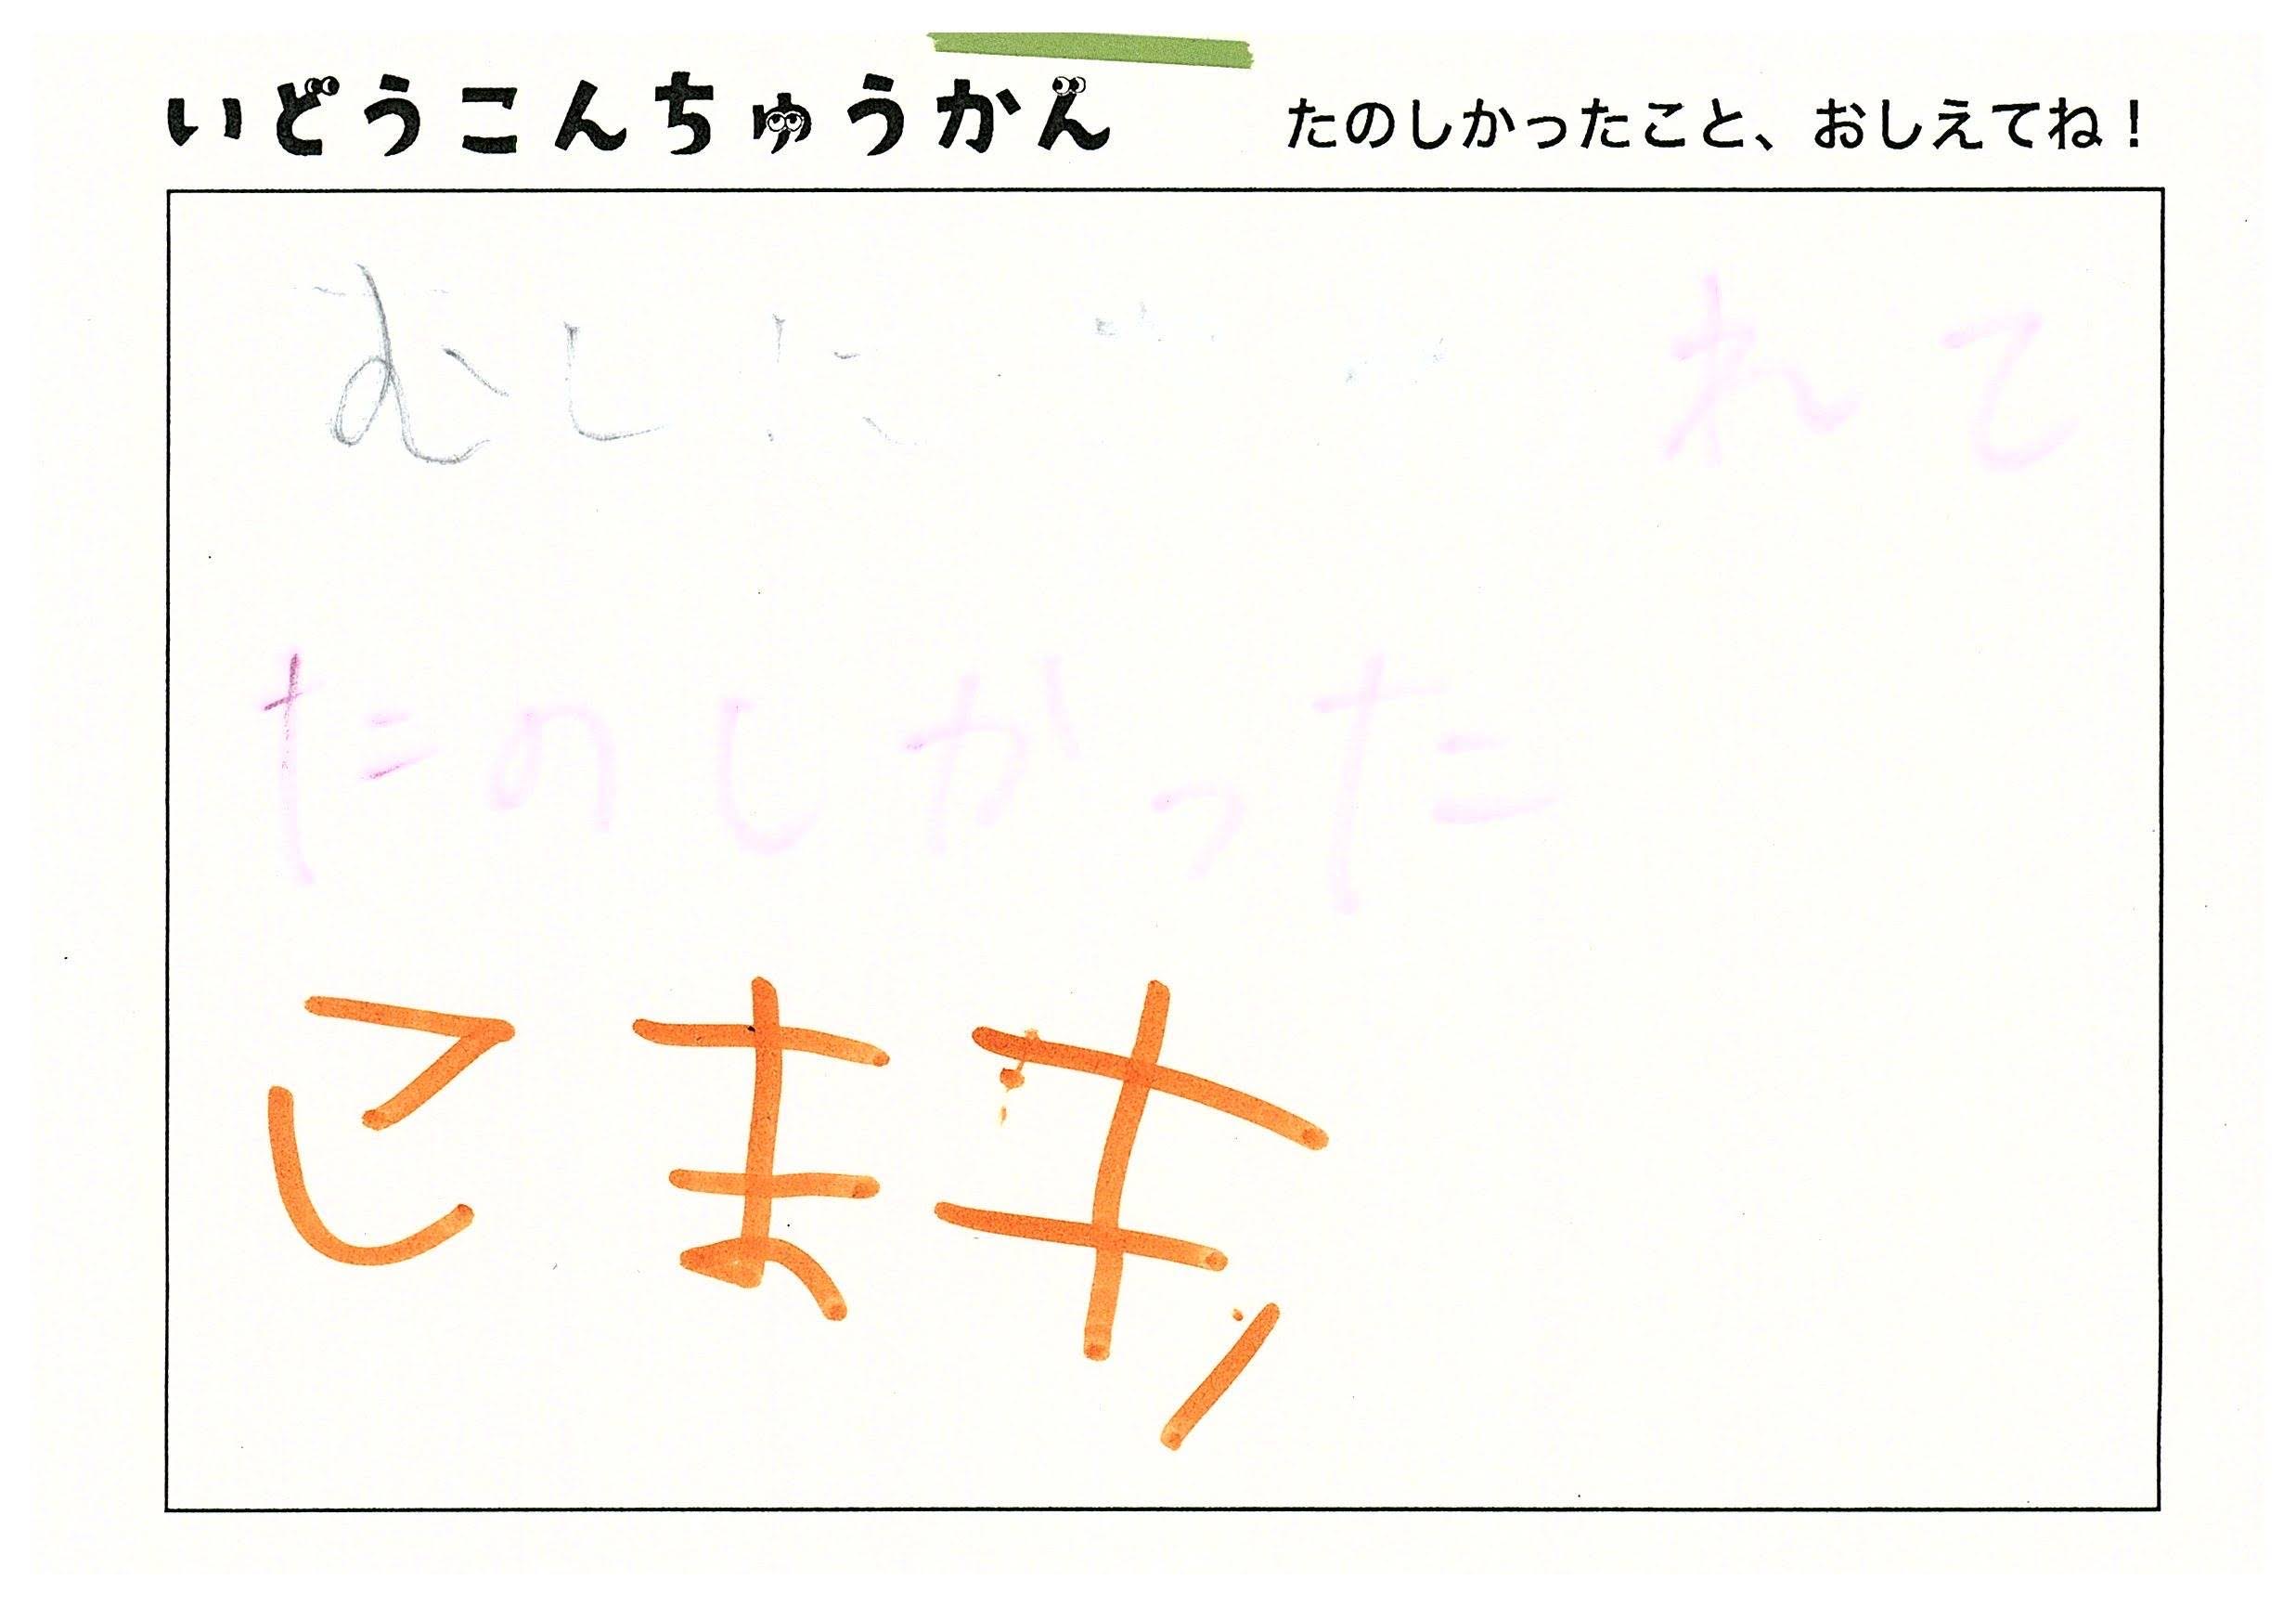 いどうこんちゅうかん たのしかったこと、おしえてね！
むしに れて
たのしかった
こまき